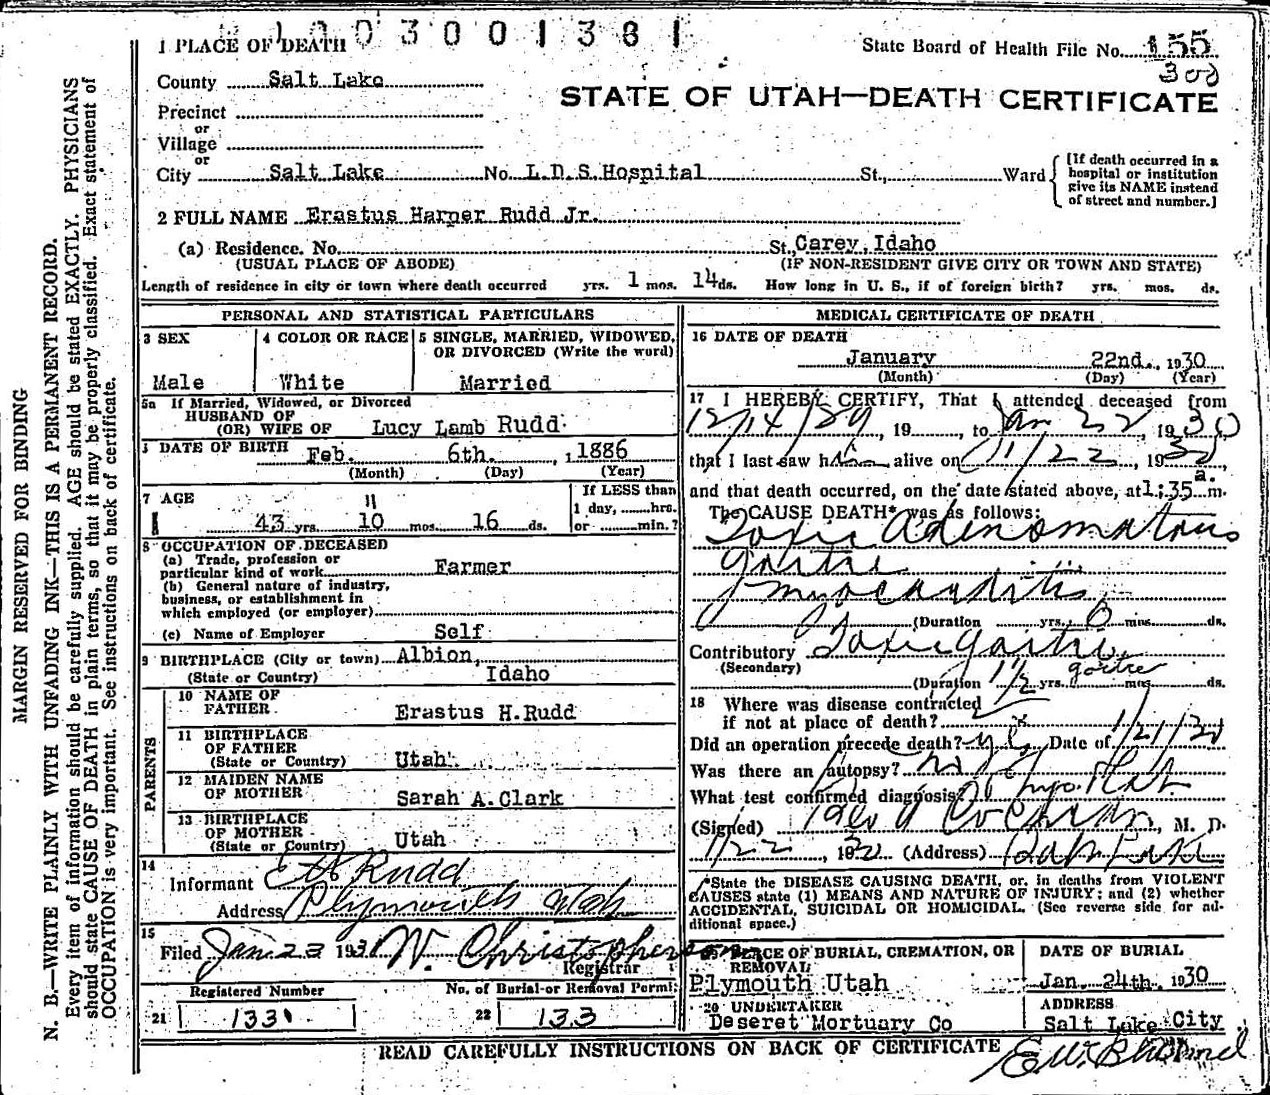 1 0 0 3 0 0 1 3 6 1
1 PLACE OF DEATH
State Board of Health File No. 155
300
County Salt Lake
STATE OF UTAH—DEATH CERTIFICATE
Precinct
or
Village
or
City Salt Lake No. L.D.S.Hospital St., Ward
[If death occurred in a hospital or institution give its NAME instead of street and number.]
2 FULL NAME Erastus Harper Rudd Jr.
(a) Residence. No. St, Carey, Idaho
(USUAL PLACE OF ABODE) (IF NON-RESIDENT GIVE CITY OR TOWN AND STATE)
Length of residence in city or town where death occurred yrs. 1 mos. 14 ds. How long in U. S., if of foreign birth? yrs. mos. ds.
PERSONAL AND STATISTICAL PARTICULARS
3 SEX
Male
4 COLOR OR RACE
White
5 SINGLE, MARRIED, WIDOWED,
OR DIVORCED (Write the word)
Married
5a If Married, Widowed, or Divorced
HUSBAND OF
(OR) WIFE OF Lucy Lamb Rudd
DATE OF BIRTH Feb. 6th. , 1886
(Month) (Day) (Year)
7 AGE
11
43 yrs. 10 mos. 16 ds.
If LESS than
1 day, hrs.
or min.?
8 OCCUPATION OF DECEASED
(a) Trade, profession or
particular kind of work Farmer
(b) General nature of industry,
business, or establishment in
which employed (or employer)
(c) Name of Employer Self
9 BIRTHPLACE (City or town) Albion,
(State or Country) Idaho
PARENTS
10 NAME OF
FATHER Erastus H.Rudd
11 BIRTHPLACE
OF FATHER
(State or Country) Utah
12 MAIDEN NAME
OF MOTHER Sarah A.Clark
13 BIRTHPLACE
OF MOTHER
(State or Country) Utah
14
Informant E H Rudd
Address Plymouth Utah
15
Filed Jan 23 1930 W. Christopherson
Registrar
Registered Number No. of Burial or Removal Permit
21 133 22 133
MEDICAL CERTIFICATE OF DEATH
16 DATE OF DEATH
January 22nd., 1930
(Month) (Day) (Year)
17 I HEREBY CERTIFY, That I attended deceased from
12/14/29, 19 , to Jan 22, 1930
that I last saw him alive on 1/22, 1930,
and that death occurred, on the date stated above, at 1:35 a. m.
The CAUSE DEATH* was as follows:
Toxic Adenomatous
goitre
myocarditis
(Duration yrs. 6 mos. ds.
Contributory Toxic goitre
(Secondary) goitre
(Duration 1 1/2 yrs. mos. ds.
18 Where was disease contracted
if not at place of death?
Did an operation precede death? yes Date of 1/21/30
Was there an autopsy? no
What test confirmed diagnosis?
(Signed) Cochran, M. D.
1/22, 1930 (Address)
*State the DISEASE CAUSING DEATH, or, in deaths from VIOLENT
CAUSES state (1) MEANS AND NATURE OF INJURY; and (2) whether
ACCIDENTAL, SUICIDAL OR HOMICIDAL. (See reverse side for ad-
ditional space.)
PLACE OF BURIAL, CREMATION, OR
REMOVAL
Plymouth Utah
DATE OF BURIAL
Jan. 24th, 1930
20 UNDERTAKER
Deseret Mortuary Co
ADDRESS
Salt Lake City
READ CAREFULLY INSTRUCTIONS ON BACK OF CERTIFICATE
MARGIN RESERVED FOR BINDING
N. B.—WRITE PLAINLY WITH UNFADING INK—THIS IS A PERMANENT RECORD.
Every item of information should be carefully supplied. AGE should be stated EXACTLY. PHYSICIANS
should state CAUSE OF DEATH in plain terms, so that it may be properly classified. Exact statement of
OCCUPATION is very important. See instructions on back of certificate.